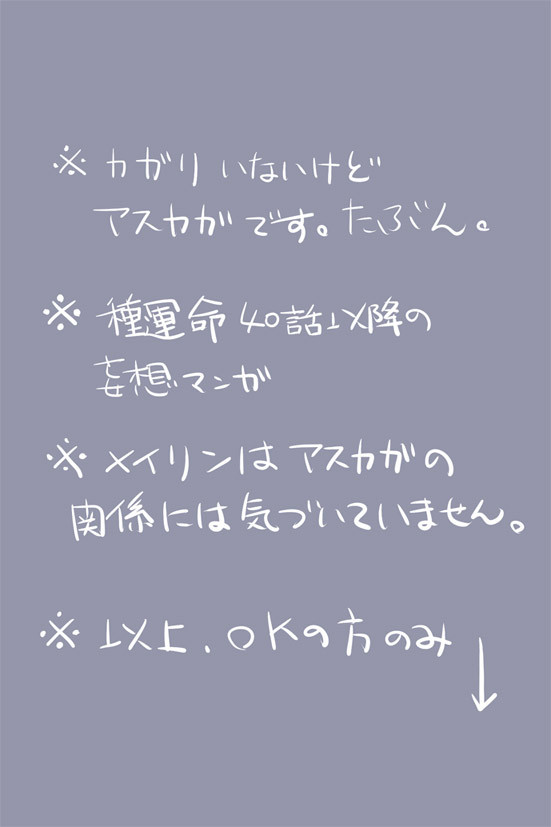 ※ カガリいないけど
アスカガです。たぶん。
※ 種運命40話以降の
妄想マンガ
※ メイリンはアスカガの
関係には気づいていません。
※ 以上、OKの方のみ
↓